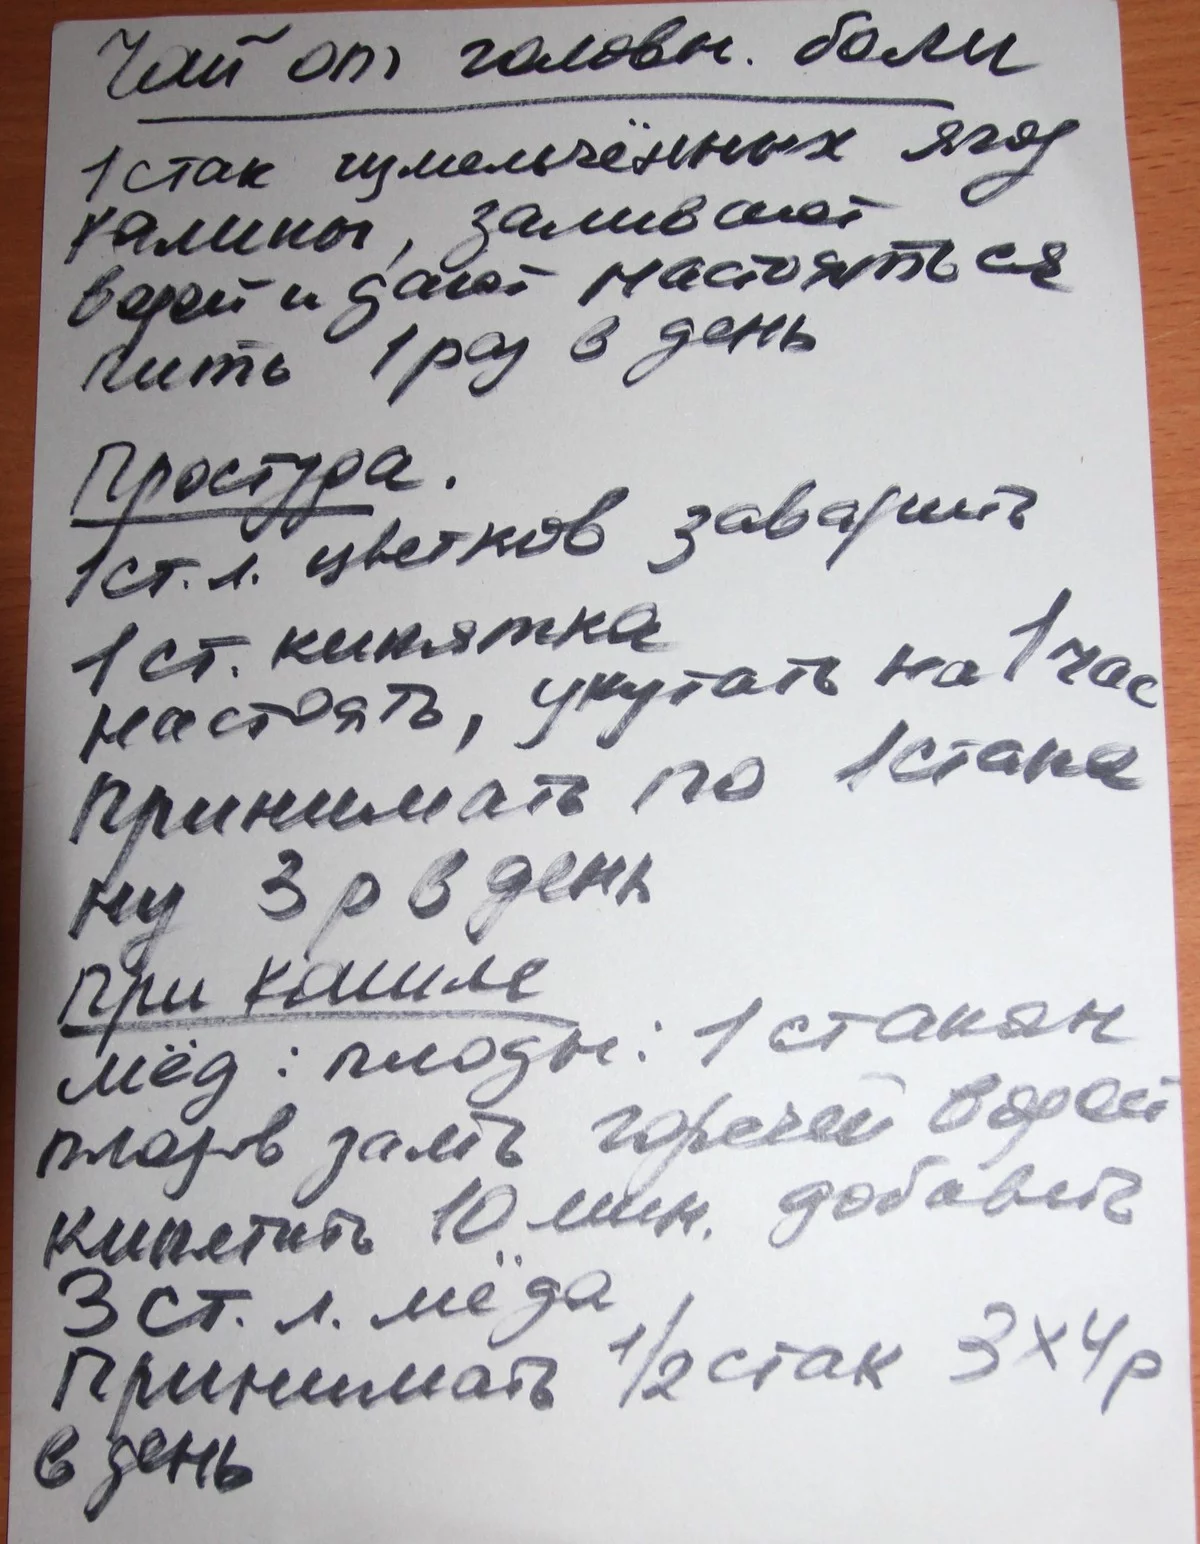 Чай от головн. боли
1 стак измельчённых ягод
калины, заливают
водой и дают настояться
пить 1 раз в день
Простуда.
1 ст. л. цветков заварить
1 ст. кипятка
настоять, укутать на 1 час
Принимать по 1 стака
ну 3 р в день
При кашле
мёд : плоды : 1 стакан
плодов залть горечей водой
кипятить 10 мин. добавить
3 ст. л. мёда
Принимать 1/2 стак 3 х 4 р
в день